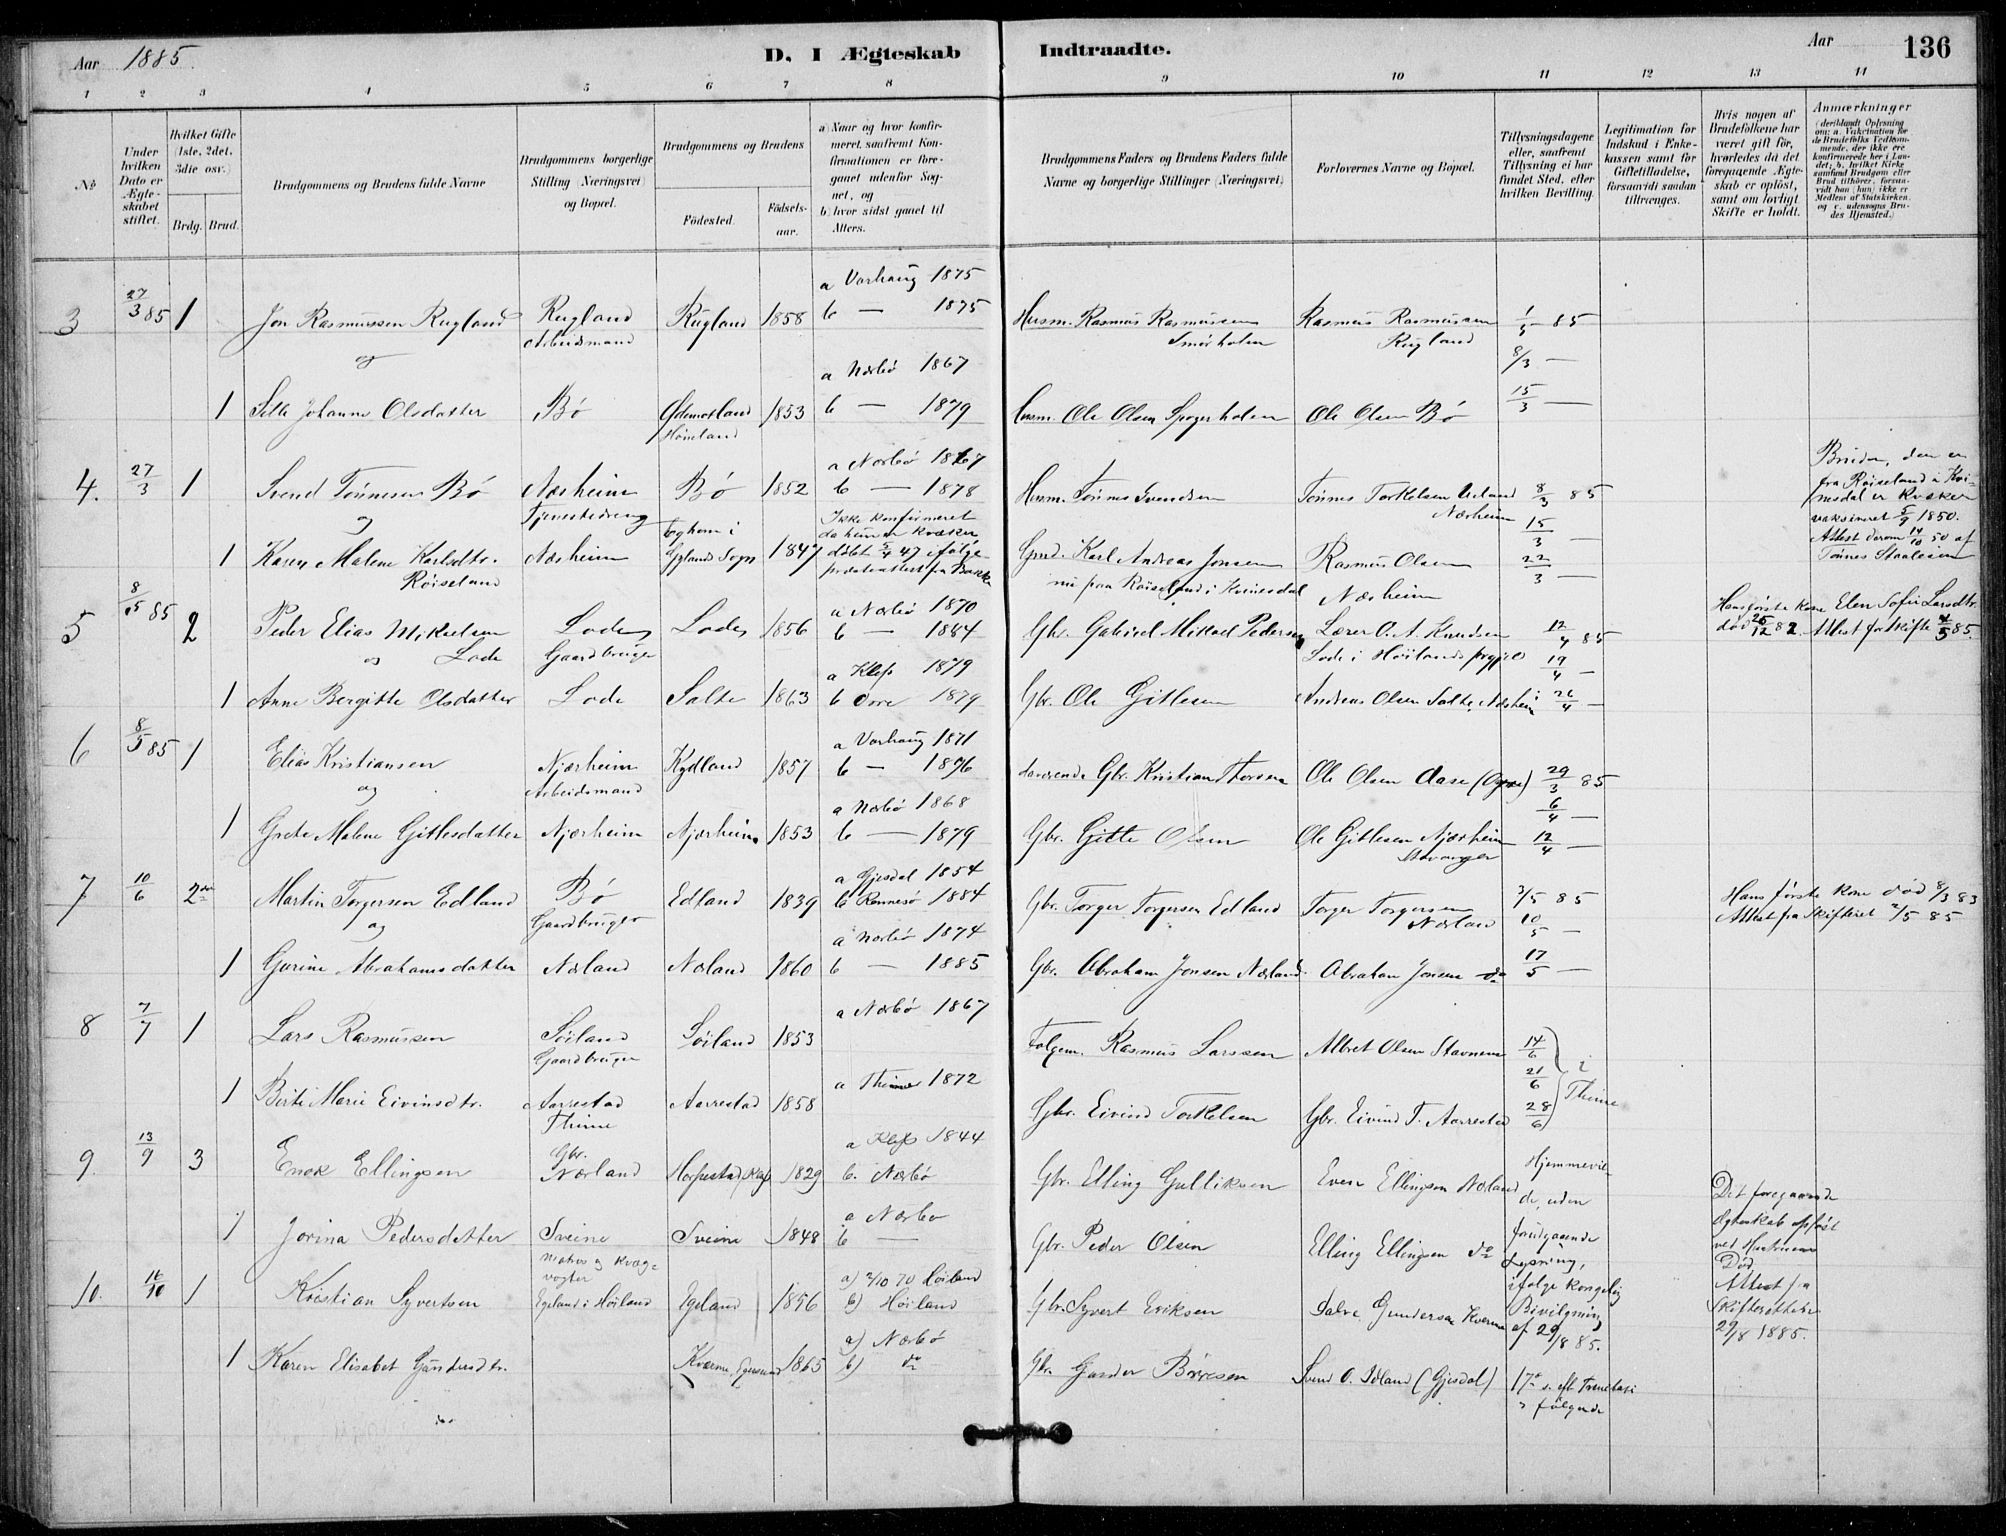 Aar 1885.
D. I Ægteskab Indtraadte.
Aar
136
1 2 3 4 5 6 7 8 9 10 11 12 13 14
No
Under hvilken Dato er Ægteskabet stiftet.
Hvilket Gifte (1ste, 2det, 3die osv.)
Brdg. Brud.
Brudgommens og Brudens fulde Navne
Brudgommens borgerlige Stilling (Næringsvei) og Bopæl.
Brudgommens og Brudens
Fødested.
Fødselsaar.
a) Naar og hvor konfirmeret, saafremt Konfirmationen er foregaaet udenfor Sognet, og
b) hvor sidst gaaet til Alters.
Brudgommens Faders og Brudens Faders fulde Navne og borgerlige Stillinger (Næringsvei).
Forlovernes Navne og Bopæl.
Tillysningsdagene eller, saafremt Tillysning ei har fundet Sted, efter hvilken Bevilling.
Legitimation for Indskud i Enkekassen samt for Giftetilladelse, forsaavidt saadan tiltrænges.
Hvis nogen af Brudefolkene har været gift før, hvorledes da det foregaaende Ægteskab er opløst, samt om lovligt Skifte er holdt.
Anmærkninger (deriblandt Oplysning om: a. Vakcination for de Brudefolks Vedkommende, der ikke ere konfirmerede her i Landet; b. hvilket Kirkesamfund Brudgom eller Brud tilhører, forsaavidt han (hun) ikke er Medlem af Statskirken, og c. udensogns Brudes Hjemsted.)
a Varhaug 1875
3 27/3 85 1 Jon Rasmussen Rugland Rugland Rugland 1858 b — 1875 Husm. Rasmus Rasmussen Rasmus Rasmussen 1/3 85
og Arbeidsmand Smørholen Rugland 8/3 —
a Nærbø 1867
1 Sille Johanne Olsdatter Bø Ødemotland 1853 b — 1879 Husm. Ole Olsen Ole Olsen Bø 15/3 —
Høieland
a Nærbø 1867 Bruden, der er
4. 27/3 1 Svend Tønnesen Bø Nærheim Bø 1852 b — 1878 Husm. Tønnes Svendsen Tønnes Torkelsen 8/3 85 fra Røiseland i Kvi-
og Tjenestedreng Ikke konfirmeret Nærheim 15/3 — nesdal er Kvæker
da hun er kvæker vaksineret 5/9 1850.
1 Karen Malene Karlsdtr. Nærheim Gyland Sogn 1847 døbt 5/4 47 ifølge Gmd. Karl Andreas Jonsen Rasmus Olsen 22/3 — Attest derom 14/10 50 af
Røiseland presteattest fra Bakke nu paa Røiseland i Kvinesdal Nærheim Tønnes Staalesen
a Nærbø 1870 Hans første kone Elen Sofie Larsdtr.
5 8/5 85 2 Peder Elias Mikaelsen Lode Lode 1856 b — 1884 Gbr. Gabriel Mikael Pedersen Lærer O. A. Knudsen 12/4 85 død 26/12 82. Attest fra skifte 4/5 85.
og Lode Gaardbruger Lode i Høilands prgjeld 19/4 —
a Klep 1879
1 Anne Bergitte Olsdatter Lode Salte 1863 b Orre 1879 Gbr. Ole Gitlesen Andreas Olsen Salte, Nærheim 26/4 —
a Varhaug 1871
6 8/5 85 1 Elias Kristiansen Njærheim Kydland 1857 b — 1876 værende Gbr. Kristian Thorsen Ole Olsen Aase (Ogna) 29/3 85
og Arbeidsmand 6/4 —
a Nærbø 1868
1 Grete Malene Gitlesdatter Njærheim Njærheim 1853 b — 1879 Gbr. Gitle Olsen Ole Gitlesen Njærheim 12/4 —
Stavanger
a Gjesdal 1854
7 10/6 2den Martin Torgersen Edland Bø Edland 1839 b Rennesø 1884 Gbr. Torger Torgersen Edland Torger Torgersen 3/5 85 Hans første kone død 8/3 83
og Gaardbruger Nærland 10/5 — Attest fra Skifteret 2/5 85
a Nærbø 1874
1 Gurine Abrahamsdatter Nærland Nærland 1860 b — 1885 Gbr. Abraham Jonsen Nærland Abraham Jonsen do 17/5 —
a Nærbø 1867
8 7/7 1 Lars Rasmussen Søiland Søiland 1853 Folgem. Rasmus Larssen Albret Olsen Stavnem 14/6
Gaardbruger 21/6 i
a Thime 1872
1 Birte Marie Eivinsdtr. Aarrestad Aarrestad 1858 Gbr. Eivind Torkelsen Gbr. Eivind T. Aarrestad 28/6 Thime
Thime
a Klep 1844
9. 13/9 3 Enok Ellingsen Gbr. Nærland Horpestad (Klep 1829 b. Nærbø Gbr. Elling Gulliksen Even Ellingsen Nærland Hjemmevie-
de, uden Det foregaaende
1 Jorina Pedersdatter Sveine Sveine 1848 a Nærbø Gbr. Peder Olsen Elling Ellingsen do forudgaaende Ægteskab opløst
b — Lysning, ved Hustruens
10. 16/10 1 Kristian Syvertsen Egeland i Høiland Egeland 1856 a) 2/10 70 Høiland Gbr. Syvert Eriksen Salve Gundersen Kverme ifølge kongelig Død
b) Høiland Bevilgning Attest fra
af 29/8 85. Skifteretten
29/8 1885.
1 Karen Elisabet Gundersdtr. Kverme, Egersund 1865 a) Nærbø Gbr. Gunder Svend O. Edland (Gjesdal) 17de s. eft Trinitatis
b) do følgende